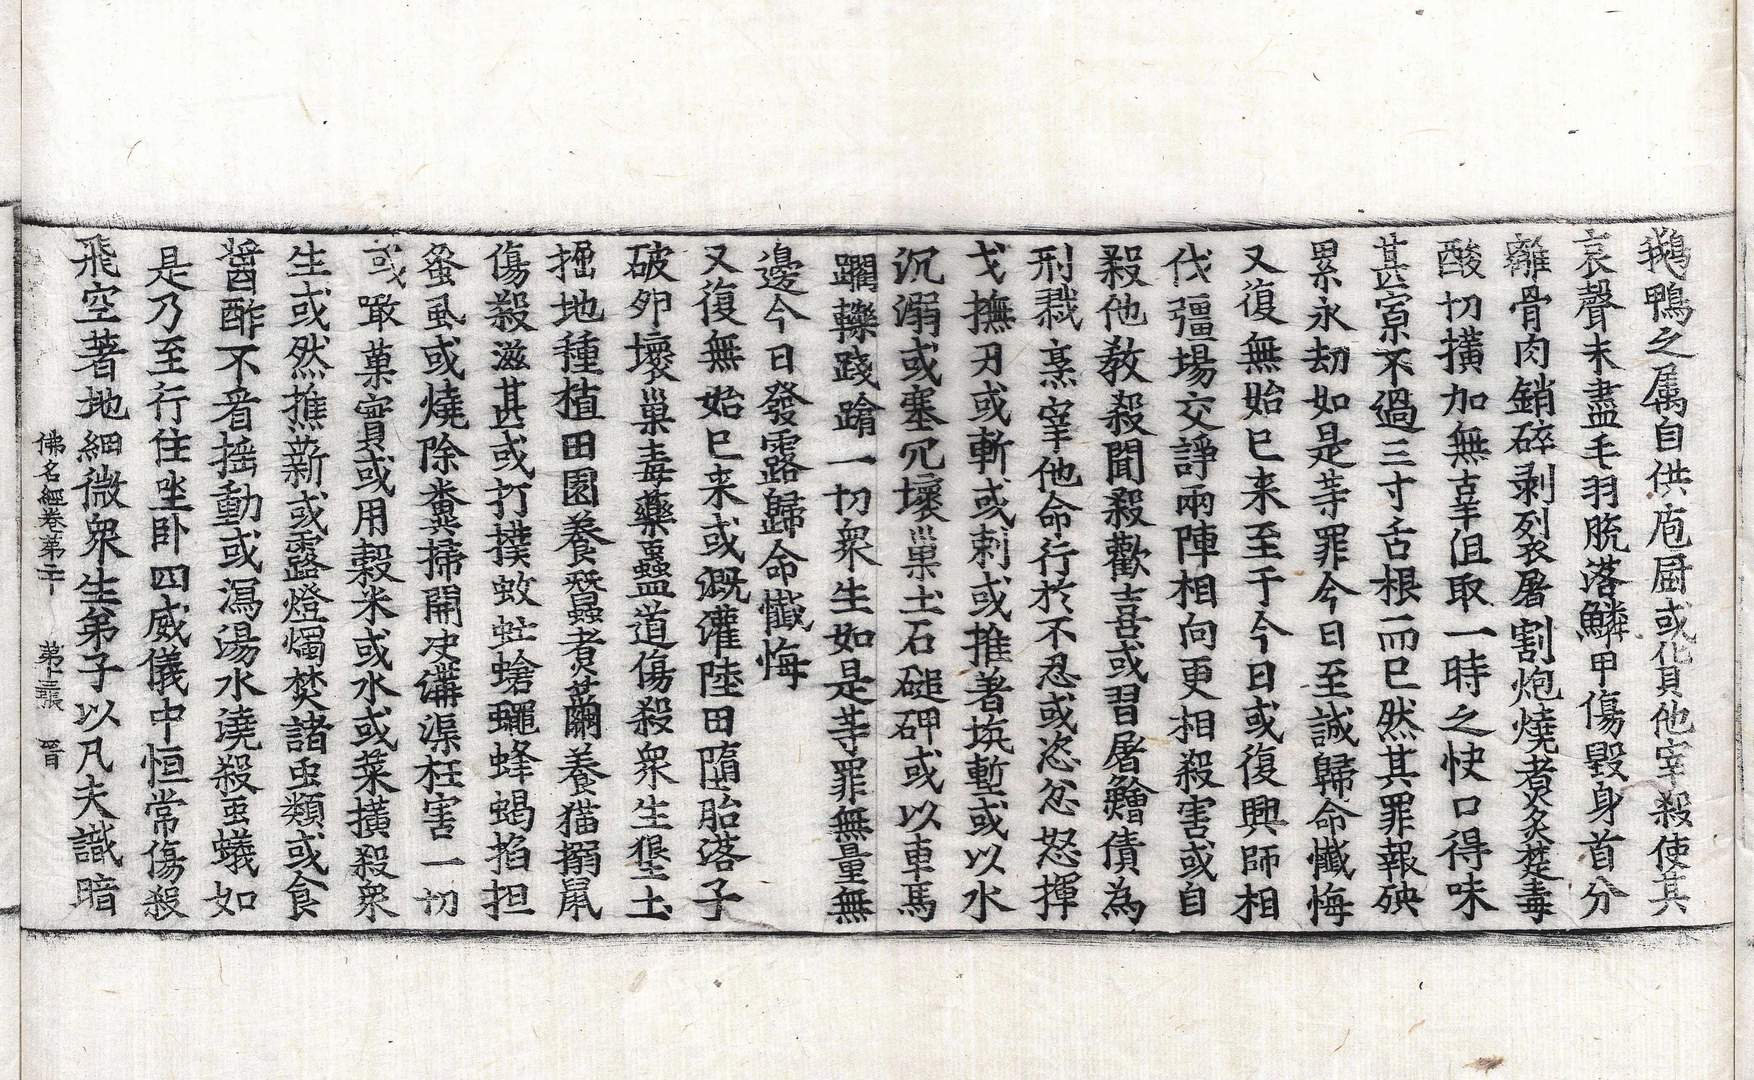 鵝鴨之属自供庖厨或㐌貝他宰殺使其
哀聲未盡毛羽脫落鱗甲傷毀身首分
離骨肉銷碎剥列裂屠割炮燒煑炙楚毒
酸切撗加無辜但取一時之快口得味
甚寡不過三寸舌根而已然其罪報殃
累永劫如是等罪今日至誠歸命懺悔
又復無始已来至于今日或復興師相
伐彊場交諍兩陣相向更相殺害或自
殺他教殺聞殺歡喜或習屠鱠債為
刑戮烹宰他命行於不忍或恣忿怒揮
戈撫刃或斬或刺或推著坑塹或以水
沉溺或塞宂壞巢土石磓砷或以車馬
躙轢踐蹹一切衆生如是等罪無量無
邊今日發露歸命懺悔
又復無始已来或溉灌陸田墮胎落子
破夘壞巢毒藥蠱道傷殺衆生墾土
掘地種植田園養蠶煑蠒養猫搦鼠
傷殺滋甚或打撲蚊蚊蛇螥蠅蜂蝎掐担
蚤虱或燒除糞掃開决溝渠枉害一切
或噉菓實或用穀米或水或菜撗殺衆
生或然𤎅薪或露燈燭焚諸虫類或食
醬酢不看搖動或瀉湯水澆殺虫蟻如
是乃至行住坐卧四威儀中恒常傷殺
飛空著地細微衆生弟子以凡夫識暗
佛名經卷苐二十 苐十三張 晋